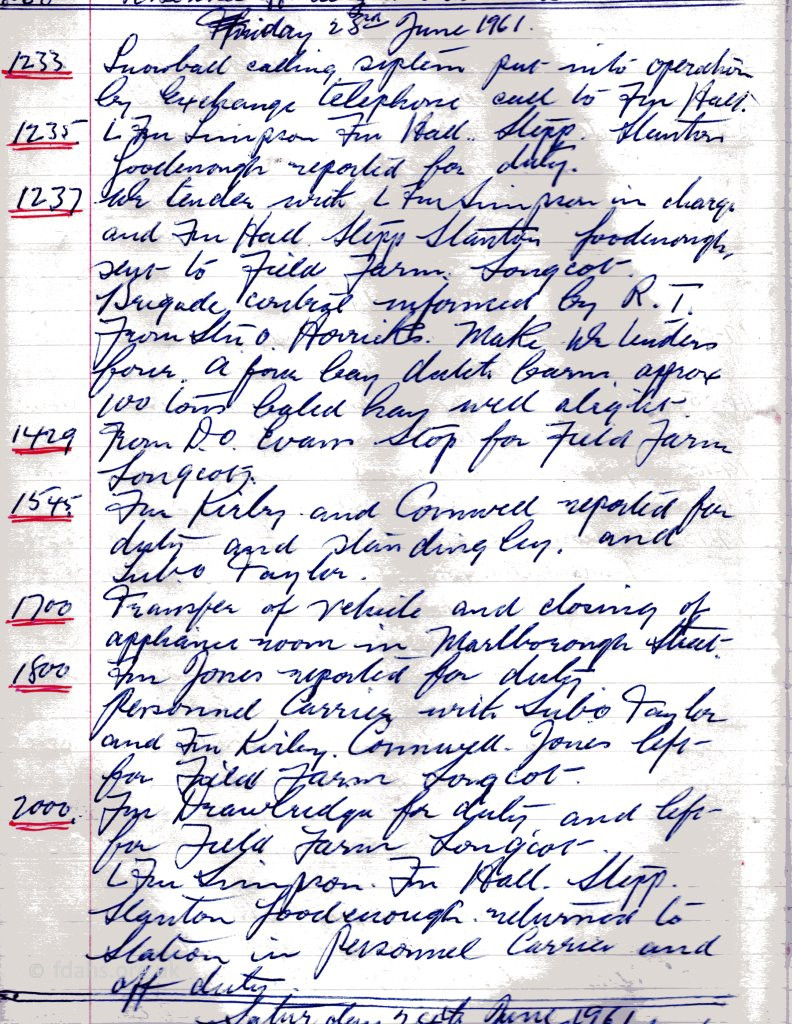 Friday 23rd June 1961.
1233 Snowball calling system put into operation
by exchange telephone call to Fm Hall.
1235 L Fm Simpson Fm Hall. Stepp. Stanton
Goodenough reported for duty.
1237 Wr tender with L Fm Simpson in charge
and Fm Hall Stepp Stanton Goodenough,
sent to Field Farm. Longcot.
Brigade control informed by R.T.
From Stn O. Horricks. Make Wr tenders
four. A four bay dutch barn approx
100 tons baled hay well alight.
1429 From D.O. Evans Stop for Field Farm
Longcot.
1545 Fm Kirby and Cornwell reported for
duty and standing by. and
Sub.O Taylor.
1700 Transfer of vehicle and closing of
appliance room in Marlborough Street.
1800 Fm Jones reported for duty
Personnel Carrier with Sub.O Taylor
and Fm Kirby. Cornwell. Jones left
for Field Farm Longcot.
2000. Fm Drawbridge for duty and left
for Field Farm Longcot.
L Fm Simpson. Fm Hall. Stepp.
Stanton Goodenough. returned to
Station in Personnel Carrier and
off duty.
© fdahs.org.uk
Saturday 24th June 1961